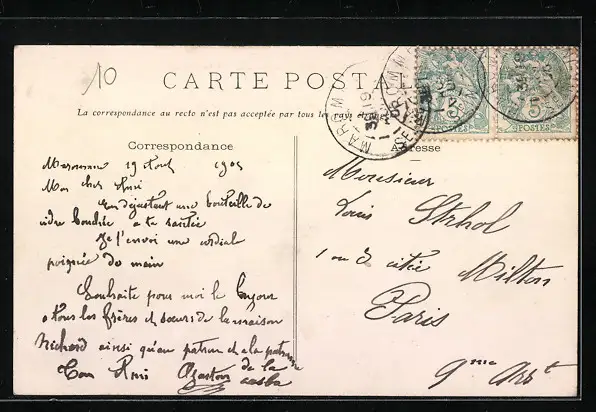 10
CARTE POSTALE
La correspondance au recto n'est pas acceptée par tous les pays étrangers
Correspondance
Maromme 19 Aout 1905
Mon cher Ami
En dégustant une bouteille de
cidre bouchée a ta santée
Je t'envoi une cordial
poignée de main
Souhaite pour moi le bonjour
a tous les frères et soeurs de la maison
Richard ainsi qu'au patron et a la patronne
Ton Ami Gaston de la
casba
Adresse
Monsieur
Louis
1 ou 3 citée Milton
Paris
9me Arrt
MAROMME
5
POSTES
5
POSTES